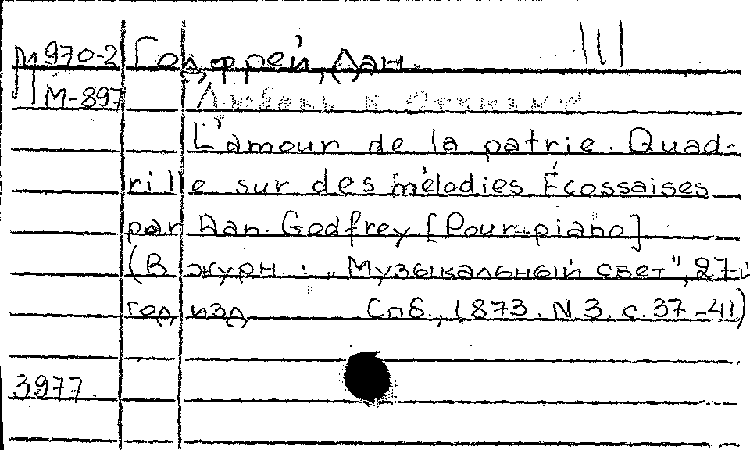 М970-2 Годфрей, Дан. III
М-897 Любовь к Отчизне
L'amour de la patrie. Quad-
rille sur des mélodies Écossaises
par Dan. Godfrey [Pour piano]
(В журн: „Музыкальный свет", 27-й
год изд Спб, 1873. N 3. с. 37-41)
3977